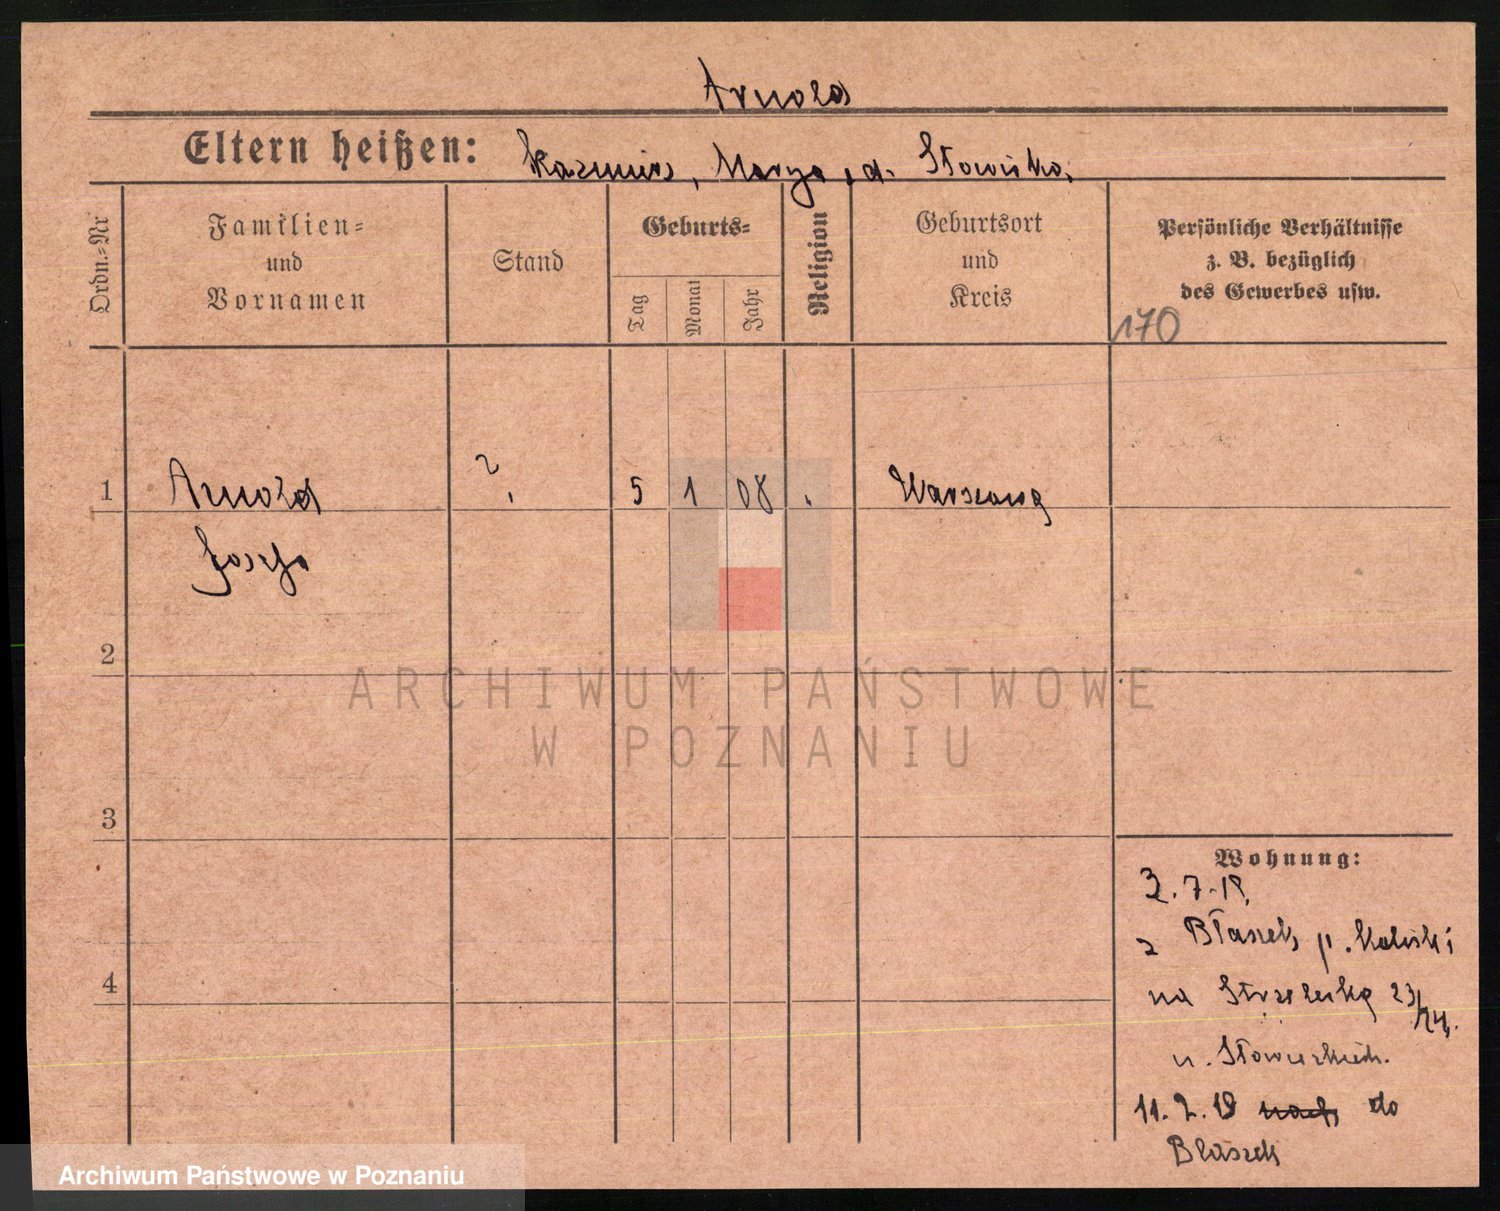 Arnold
Eltern heißen: Kazimierz, Marya, d. Słowińska.
Ordn.=Nr
Familien=
und
Vornamen
Stand
Geburts=
Tag
Monat
Jahr
Religion
Geburtsort
und
Kreis
Persönliche Verhältnisse
z. B. bezüglich
des Gewerbes usw.
170
1 Arnold ? 5 1 08 Warszawa
Józefa
2
ARCHIWUM PAŃSTWOWE
W POZNANIU
3
4
Wohnung:
2.7.18.
z Błaszek, p. Kaliski
na Strzelecką 23/24.
u. Słowińskich.
11.2.19 nach do
Błaszek
Archiwum Państwowe w Poznaniu